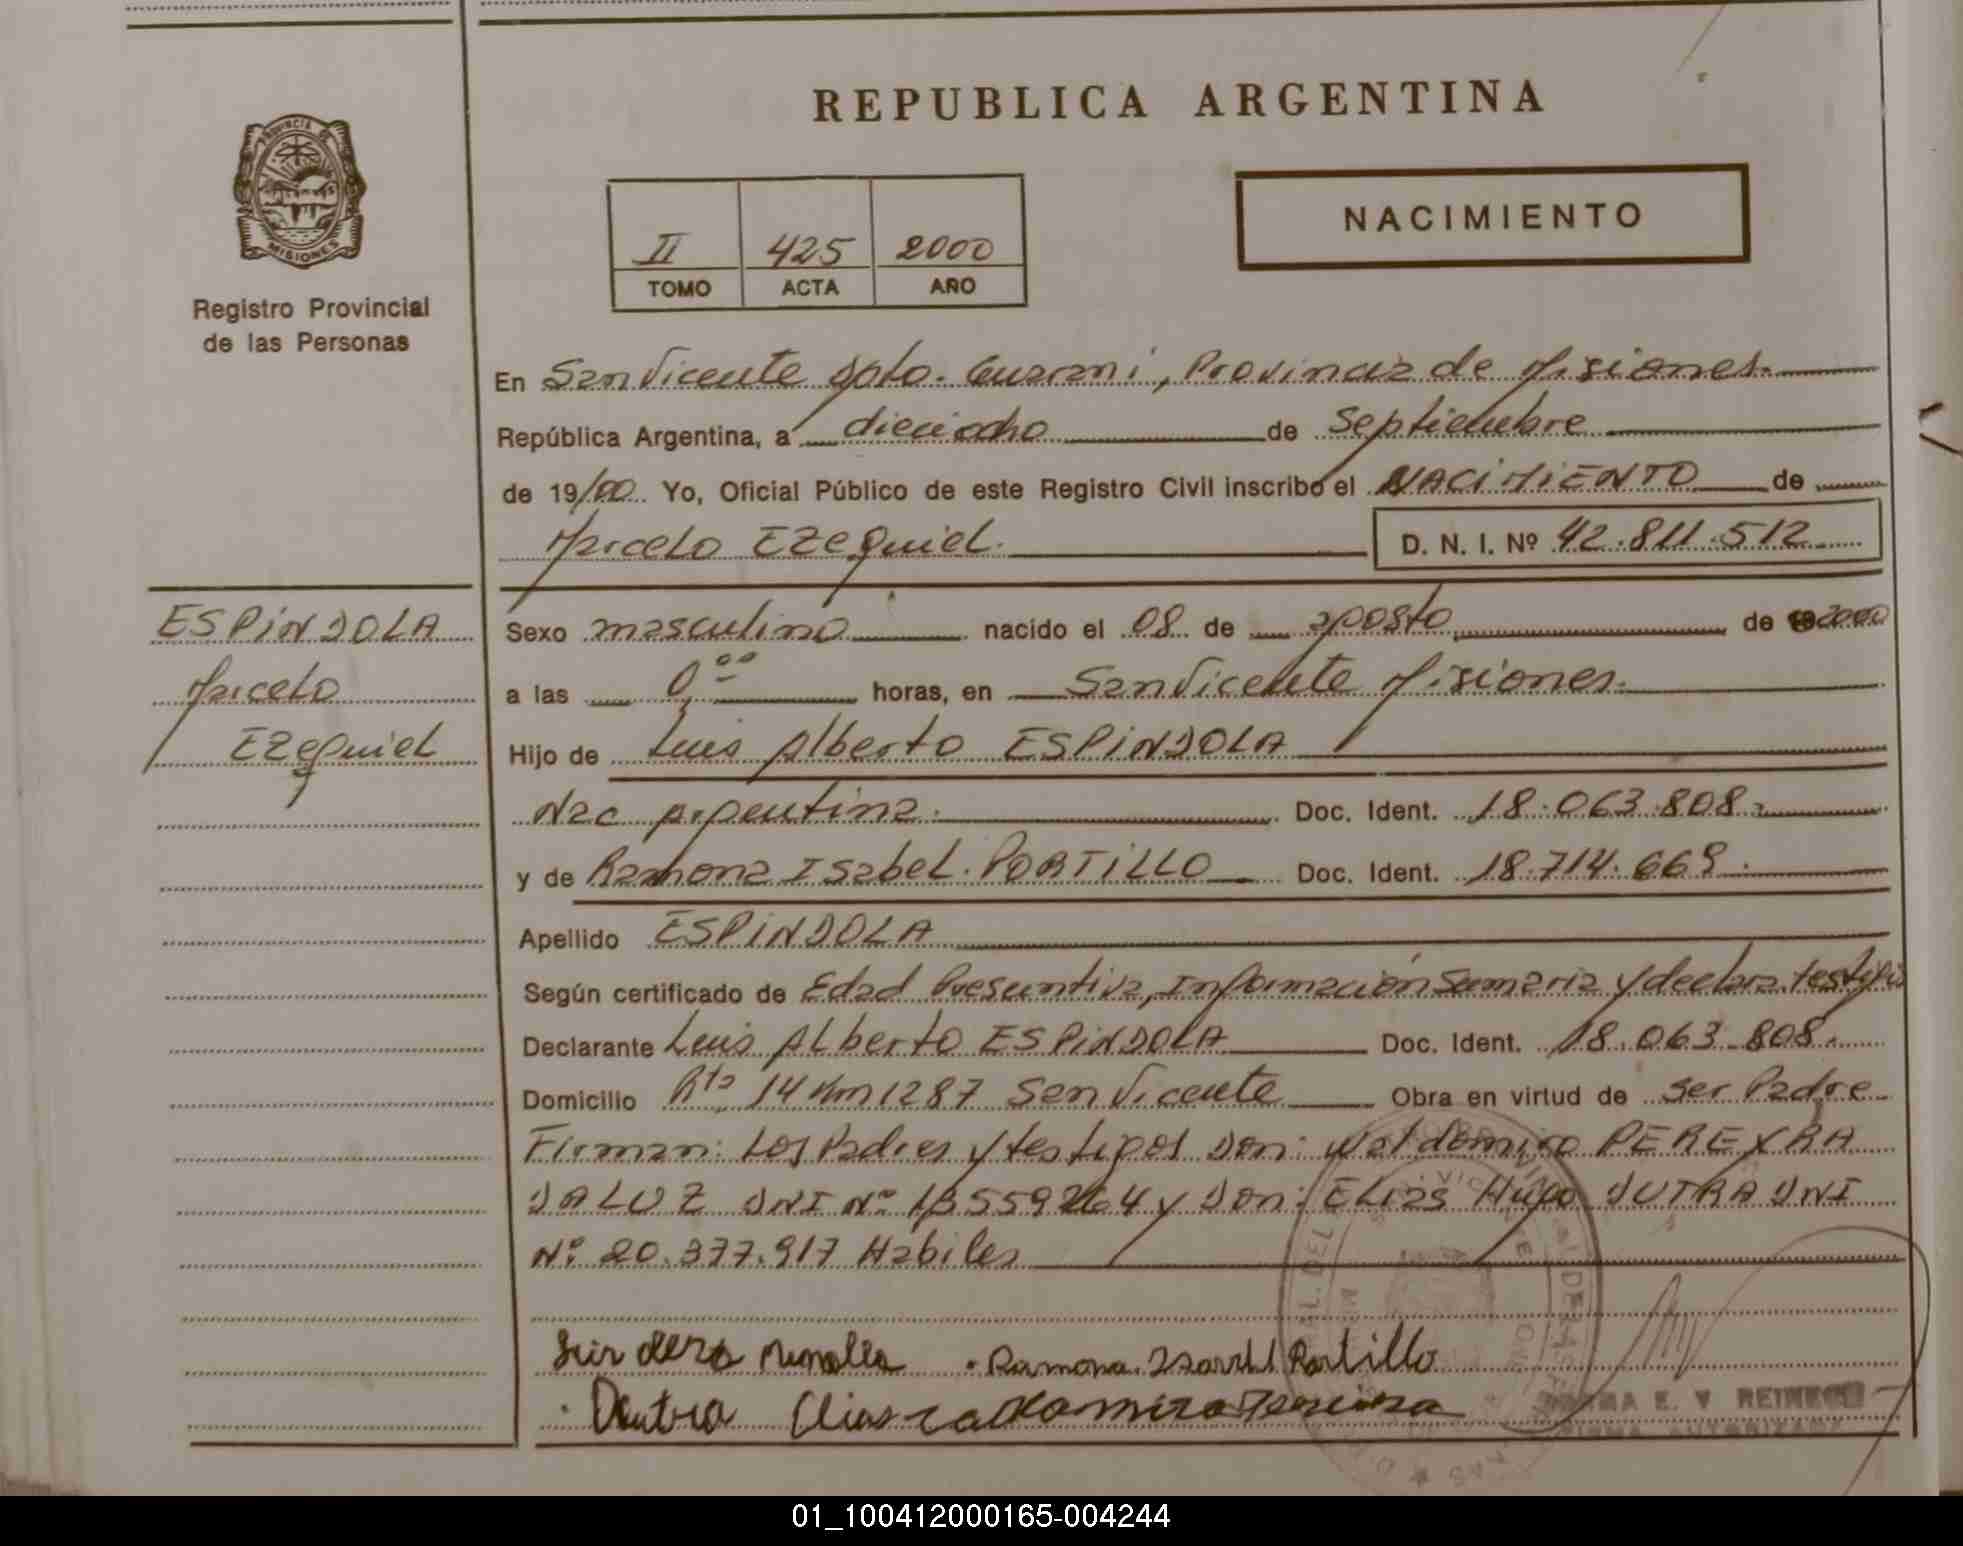 REPUBLICA ARGENTINA
PROVINCIA DE MISIONES
Registro Provincial
de las Personas
II 425 2000
TOMO ACTA AÑO
NACIMIENTO
En San Vicente Dpto. Guarani, Provincia de Misiones.
República Argentina, a dieciocho de Septiembre
de 19/00 Yo, Oficial Público de este Registro Civil inscribo el NACIMIENTO de
Marcelo Ezequiel. D. N. I. Nº 42.811.512
ESPINDOLA
Marcelo
Ezequiel
Sexo masculino nacido el 08 de agosto de 2000
a las 0,00 horas, en San Vicente Misiones.
Hijo de Luis Alberto ESPINDOLA
Nac Argentina. Doc. Ident. 18.063.808.
y de Ramona Isabel PORTILLO Doc. Ident. 18.714.669.
Apellido ESPINDOLA
Según certificado de Edad Presuntiva, Información Sumaria y declara. testigos
Declarante Luis Alberto ESPINDOLA Doc. Ident. 18.063.808.
Domicilio Rta 14 Km 1287 San Vicente Obra en virtud de ser Padre
Firman: Los Padres y testigos Don: Waldomiro PEREYRA
DALUZ DNI Nº 13559264 y Don: Elias Hugo DUTRA DNI
Nº 20.377.917 Habiles
Ramona Portillo
Dutra Elias
E. V. REINECK
FIRMA AUTORIZADA
01_100412000165-004244